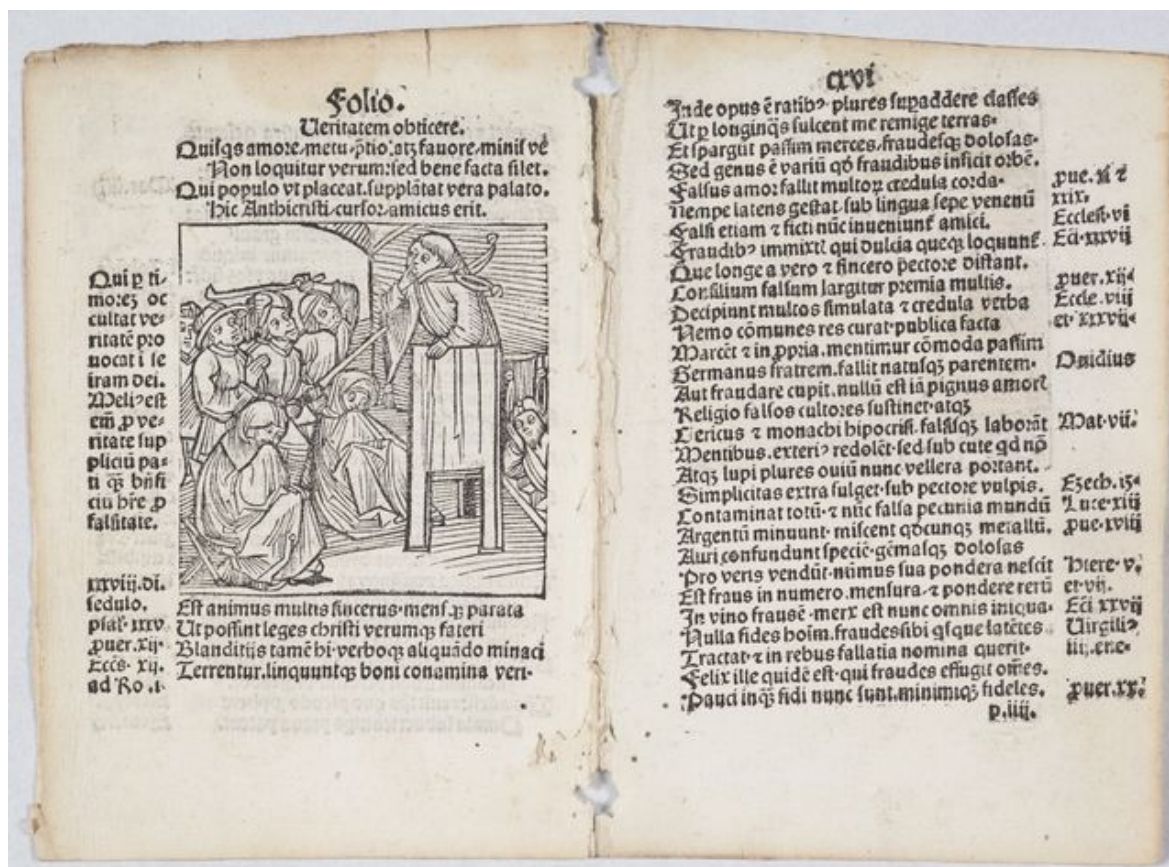 Folio.
Ueritatem obticere.
Quisqs amore, metu, p̄tio, atqꝫ fauore, minis ve
Non loquitur verum: sed bene facta silet.
Qui populo vt placeat, supplātat vera palato.
Hic Anthicristi, cursor, amicus erit.
Qui ꝑ ti-
moreꝫ oc
cultat ve-
ritatē pro
uocat i se
iram dei.
Meliꝰ est
em̄ ꝓ ve-
ritate sup
pliciū pa-
ti qꝫ bn̄fi
ciū hr̄e ꝓ
falsitate.
xxxviij. di.
sedulo.
psal. xxxv
ꝓuer. xij.
Ecc̄s. xij.
ad Ro. i.
Est animus multis sincerus. mens qꝫ parata
Ut possint leges christi verumqꝫ fateri
Blanditijs tamē hi. verboqꝫ aliquādo minaci
Terrentur. linquuntqꝫ boni conamina veri.
cxvi
Inde opus ē ratibꝰ plures supaddere classes
Ut ꝑ longinqs sulcent me remige terras.
Et spargūt passim merces, fraudesqꝫ dolosas.
Sed genus ē variū qd fraudibus inficit orbē.
Falsus amor fallit multoꝝ credula corda.
Nempe latens gestat sub lingua sepe venenū
Falsi etiam ⁊ ficti nūc inueniunt amici.
Fraudibꝰ immixti qui dulcia queqꝫ loquunt.
Que longe a vero ⁊ sincero pectore distant.
Consilium falsum largitur premia multis.
Decipiunt multos simulata ⁊ credula verba
Nemo cōmunes res curat. publica facta
Marcēt ⁊ in ꝓpria. mentimur cōmoda passim
Germanus fratrem. fallit natusqꝫ parentem.
Aut fraudare cupit. nullū est iā pignus amoris
Religio falsos cultores sustinet atqꝫ
Clericus ⁊ monachi hipocrisi. falsisqꝫ laborāt
Mentibus. exteriꝰ redolēt. sed sub cute qd nō
Atqꝫ lupi plures ouiū nunc vellera portant.
Simplicitas extra fulget. sub pectore vulpis.
Contaminat totū ⁊ nūc falsa pecunia mundū
Argentū minuunt. miscent qdcunqꝫ metallū.
Auri confundunt speciē. gēmasqꝫ dolosas
Pro veris vendūt. nūmus sua pondera nescit
Est fraus in numero. mensura. ⁊ pondere rerū
In vino frausē. merx est nunc omnis iniqua.
Nulla fides hoim. fraudes sibi qsque latētes
Tractat. ⁊ in rebus fallatia nomina querit.
Felix ille quidē est. qui fraudes effugit om̄es.
Pauci inqꝫ fidi nunc sunt. minimiqꝫ fideles.
p. iiij.
ꝓue. xi ⁊
xxix.
Eccles. vi
Eci. xxxvij
ꝓuer. xij.
Eccle. viij
et. xxxvij.
Ouidius
Mat. vij.
Ezech. 15.
Luce. xiij
ꝓue. xviij
Hiere. v.
et. vij.
Eci xxvij
Uirgiliꝰ
iij. er. e.
ꝓuer. xx.